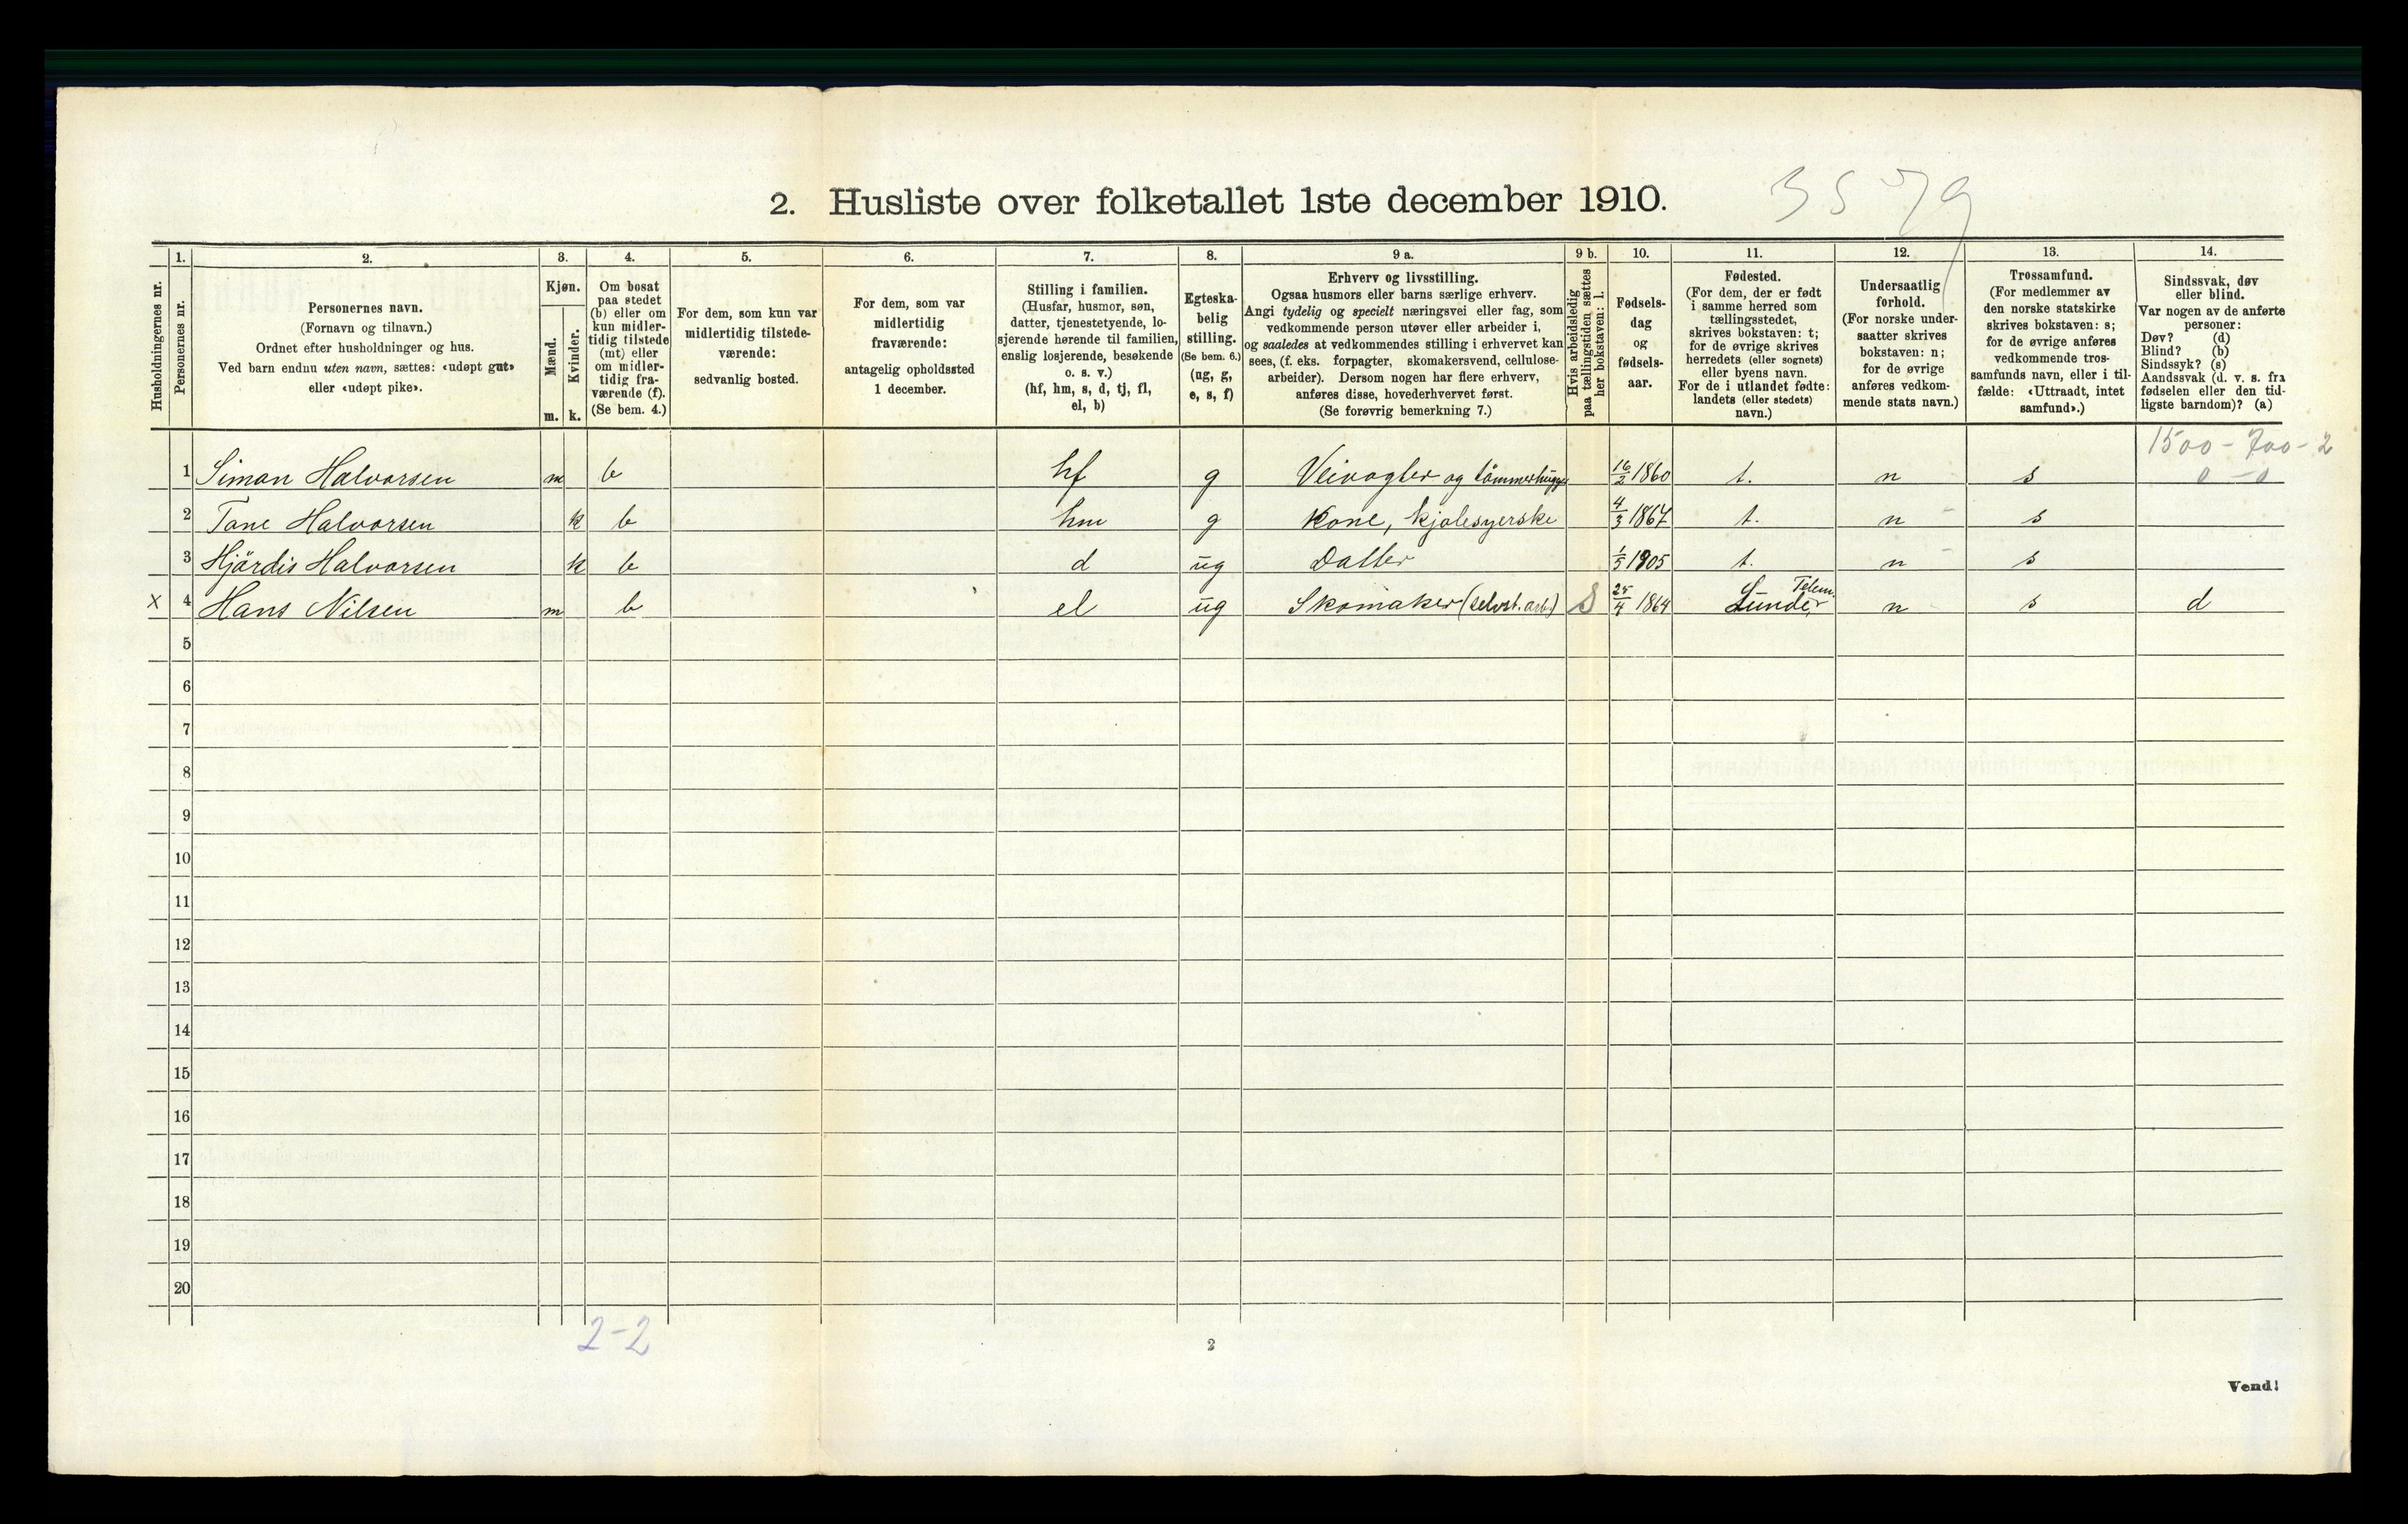 2. Husliste over folketallet 1ste december 1910.
3579
Husholdningernes nr.
1.
Personernes nr.
2.
Personernes navn.
(Fornavn og tilnavn.)
Ordnet efter husholdninger og hus.
Ved barn endnu uten navn, sættes: «udøpt gut»
eller «udøpt pike».
3.
Kjøn.
Mænd.
m.
Kvinder.
k.
4.
Om bosat
paa stedet
(b) eller om
kun midler-
tidig tilstede
(mt) eller
om midler-
tidig fra-
værende (f).
(Se bem. 4.)
5.
For dem, som kun var
midlertidig tilstede-
værende:
sedvanlig bosted.
6.
For dem, som var
midlertidig
fraværende:
antagelig opholdssted
1 december.
7.
Stilling i familien.
(Husfar, husmor, søn,
datter, tjenestetyende, lo-
sjerende hørende til familien,
enslig losjerende, besøkende
o. s. v.)
(hf, hm, s, d, tj, fl,
el, b)
8.
Egteska-
belig
stilling.
(Se bem. 6.)
(ug, g,
e, s, f)
9 a.
Erhverv og livsstilling.
Ogsaa husmors eller barns særlige erhverv.
Angi tydelig og specielt næringsvei eller fag, som
vedkommende person utøver eller arbeider i,
og saaledes at vedkommendes stilling i erhvervet kan
sees, (f. eks. forpagter, skomakersvend, cellulose-
arbeider). Dersom nogen har flere erhverv,
anføres disse, hovederhvervet først.
(Se forøvrig bemerkning 7.)
9 b.
Hvis arbeidsledig
paa tællingstiden sættes
her bokstaven: l.
10.
Fødsels-
dag
og
fødsels-
aar.
11.
Fødested.
(For dem, der er født
i samme herred som
tællingsstedet,
skrives bokstaven: t;
for de øvrige skrives
herredets (eller sognets)
eller byens navn.
For de i utlandet fødte:
landets (eller stedets)
navn.)
12.
Undersaatlig
forhold.
(For norske under-
saatter skrives
bokstaven: n;
for de øvrige
anføres vedkom-
mende stats navn.)
13.
Trossamfund.
(For medlemmer av
den norske statskirke
skrives bokstaven: s;
for de øvrige anføres
vedkommende tros-
samfunds navn, eller i til-
fælde: «Uttraadt, intet
samfund».)
14.
Sindssvak, døv
eller blind.
Var nogen av de anførte
personer:
Døv? (d)
Blind? (b)
Sindssyk? (s)
Aandssvak (d. v. s. fra
fødselen eller den tid-
ligste barndom)? (a)
1500 - 700 - 2
0 - 0
1 Simon Halvorsen m b hf g Veivogter og tömmerhugger 16/2 1860 t. n s
2 Tone Halvorsen k b hm g Kone, kjolesyerske 4/3 1867 t. n s
3 Hjördis Halvorsen k b d ug Datter 1/5 1905 t. n s
x 4 Hans Nilsen m b el ug Skomaker (selvst. arb.) S 25/4 1864 Lunde, Telem. n s d
5
6
7
8
9
10
11
12
13
14
15
16
17
18
19
20
2-2
2
Vend!